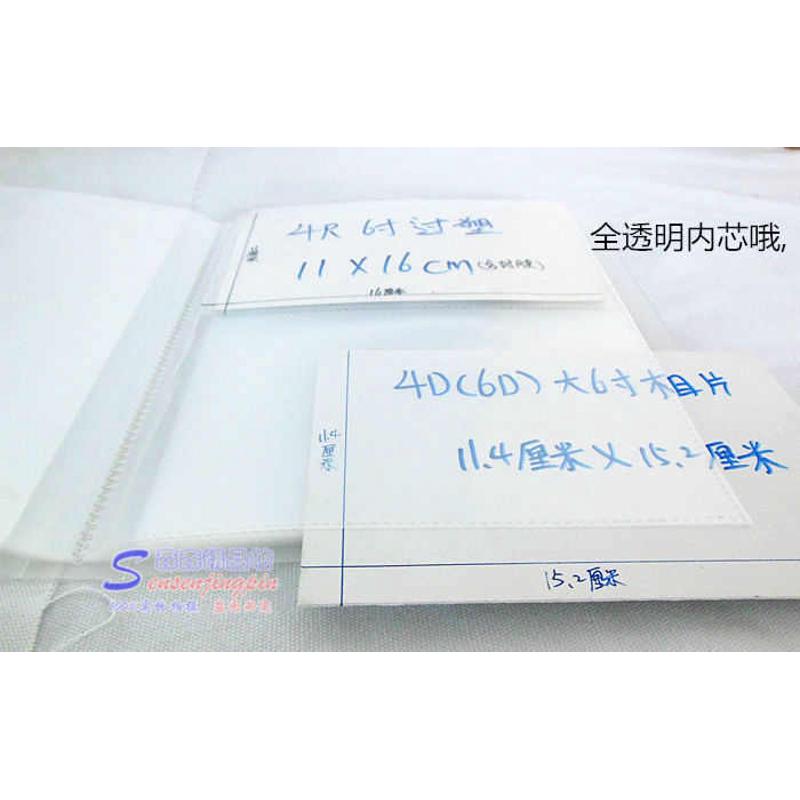 全透明内芯哦,
4R 6寸过塑
11 X 16 cm
16厘米
4D(6D) 大6寸相片
11.4厘米
11.4厘米 X 15.2厘米
15.2厘米
Sensenjingpin
100%实物拍摄 盗图必究